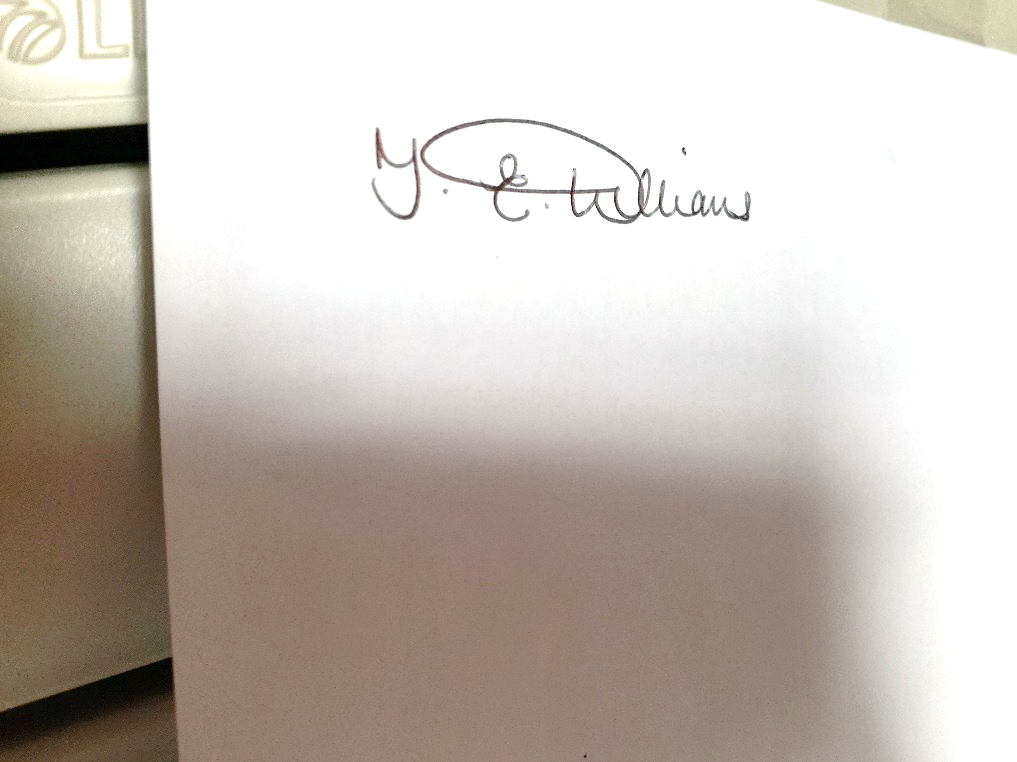 Y. E. Williams